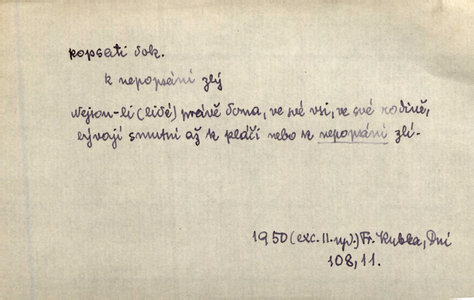 popsati dok.
k nepopsání zlý
Nejsou-li (lidé) právě doma, ve své vsi, ve své rodině,
bývají smutní až k pláči nebo k nepopsání zlí.
1950 (exc. II. vyd.) Fr. Kubka, Dni
108, 11.